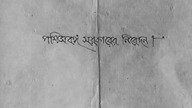 পশ্চিমবঙ্গ সরকারের নিবেদন।